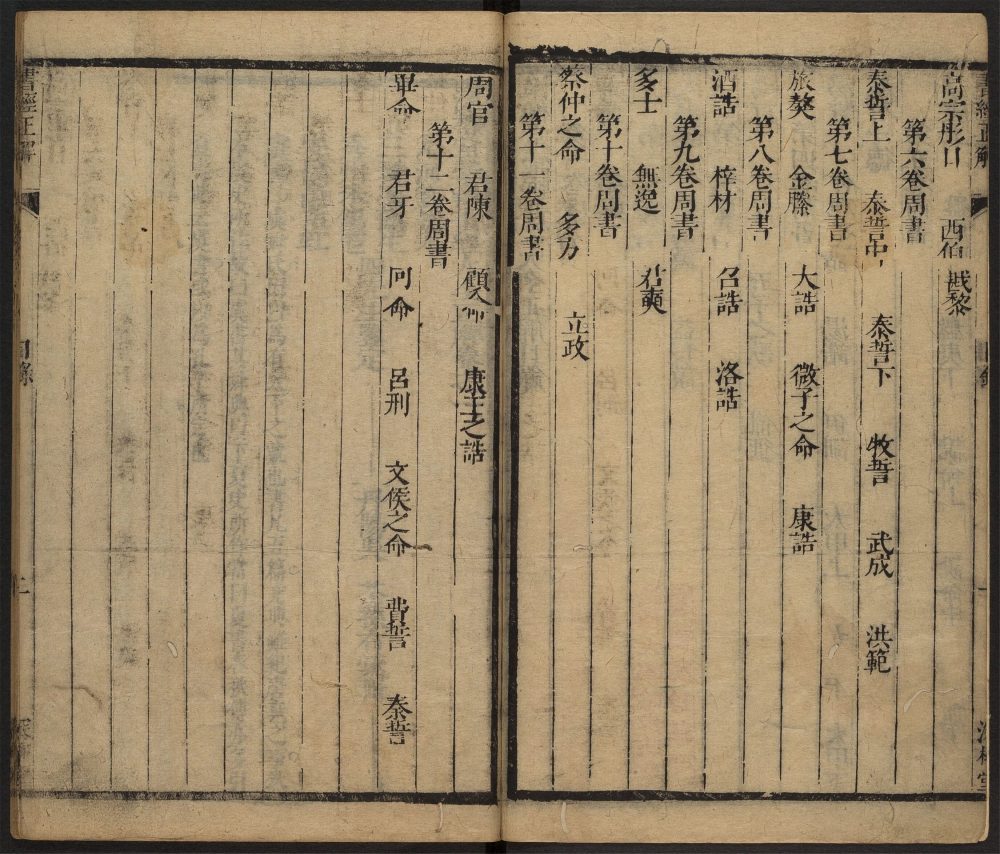 高宗肜日 西伯戡黎
第六卷周書
泰誓上 泰誓中 泰誓下 牧誓 武成 洪範
第七卷周書
旅獒 金縢 大誥 微子之命 康誥
第八卷周書
酒誥 梓材 召誥 洛誥
第九卷周書
多士 無逸 君奭
第十卷周書
蔡仲之命 多方 立政
第十一卷周書
周官 君陳 顧命 康王之誥
第十二卷周書
畢命 君牙 冏命 呂刑 文侯之命 費誓 秦誓
書經正解
目錄